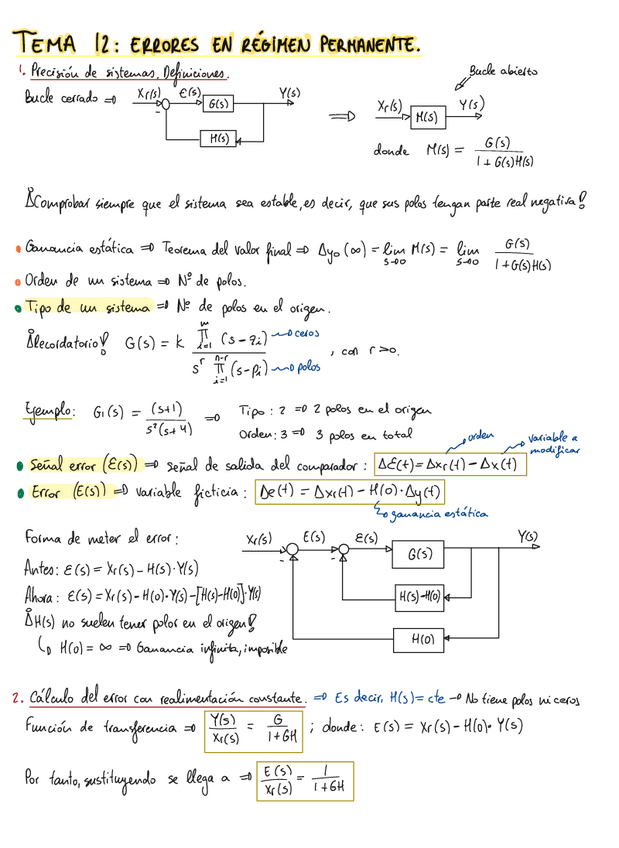 TEMA 12: ERRORES EN RÉGIMEN PERMANENTE.
1. Precisión de sistemas. Definiciones.
Bucle cerrado ⇒ Xr(s) ε(s) G(s) Y(s) - H(s)
⇒ Bucle abierto
Xr(s) M(s) Y(s)
donde M(s) = G(s) / 1 + G(s)H(s)
¡Comprobar siempre que el sistema sea estable, es decir, que sus polos tengan parte real negativa!
• Ganancia estática ⇒ Teorema del valor final ⇒ Δy₀(∞) = lim s→0 M(s) = lim s→0 G(s) / 1 + G(s)H(s)
• Orden de un sistema ⇒ Nº de polos.
• Tipo de un sistema ⇒ Nº de polos en el origen.
¡Recordatorio! G(s) = K ∏ᵐᵢ₌₁ (s - zi) → ceros / sʳ ∏ⁿ⁻ʳᵢ₌₁ (s - pi) → polos , con r > 0.
Ejemplo: G₁(s) = (s+1) / s²(s+4) ⇒ Tipo: 2 ⇒ 2 polos en el origen
Orden: 3 ⇒ 3 polos en total
orden
variable a modificar
• Señal error (ε(s)) ⇒ señal de salida del comparador: Δε(t) = Δxr(t) - Δx(t)
• Error (E(s)) ⇒ variable ficticia: Δe(t) = Δxr(t) - H(0)·Δy(t)
→ ganancia estática
Forma de meter el error:
Xr(s) E(s) ε(s) G(s) Y(s)
- -
H(s)-H(0)
H(0)
Antes: ε(s) = Xr(s) - H(s)·Y(s)
Ahora: ε(s) = Xr(s) - H(0)·Y(s) - [H(s)-H(0)]·Y(s)
¡H(s) no suelen tener polos en el origen!
↳ H(0) = ∞ ⇒ Ganancia infinita, imposible
2. Cálculo del error con realimentación constante. ⇒ Es decir, H(s) = cte → No tiene polos ni ceros
Función de transferencia ⇒ Y(s) / Xr(s) = G / 1 + GH ; donde: E(s) = Xr(s) - H(0)·Y(s)
Por tanto, sustituyendo se llega a ⇒ E(s) / Xr(s) = 1 / 1 + GH